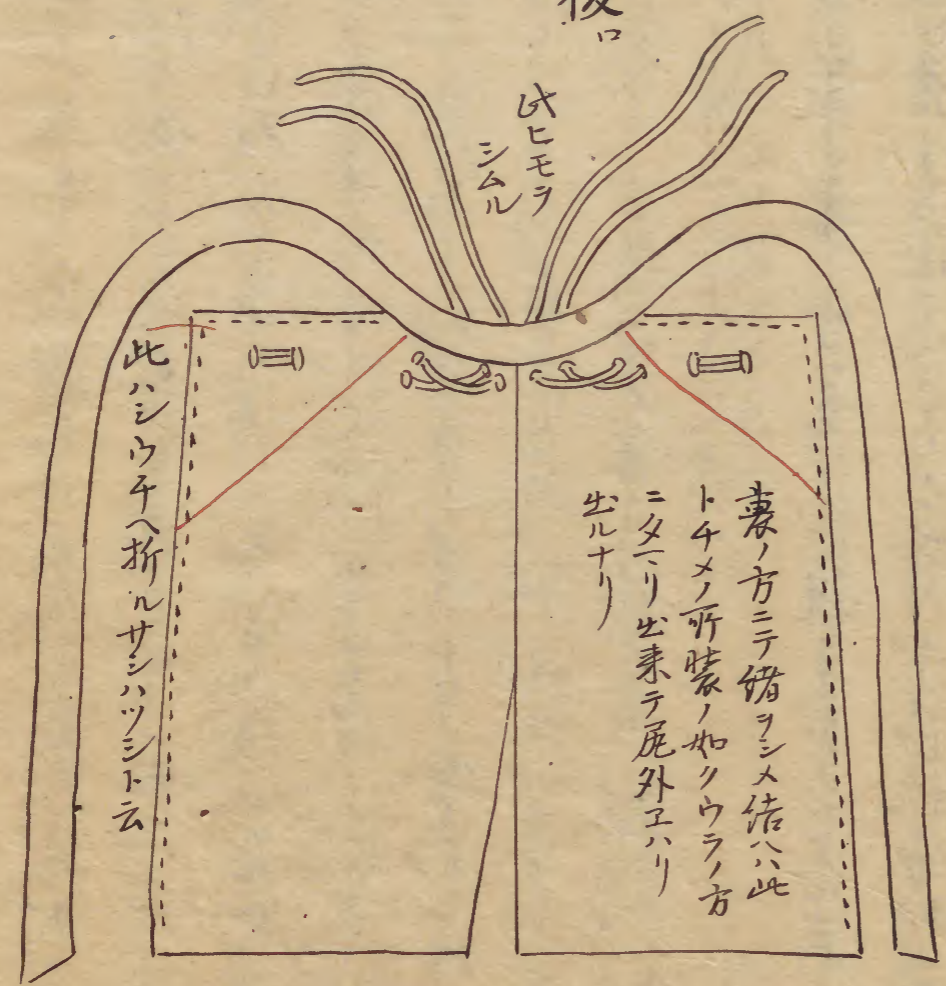 後ロ
此ヒモヲ
シムル
裏ノ方ニテ緒ヲシメ結ハハ此
トチメノ所装ノ如クウラノ方
ニタマリ出来テ尻外エハリ
出ルナリ
此ハシウチヘ折ルサシハツシト云